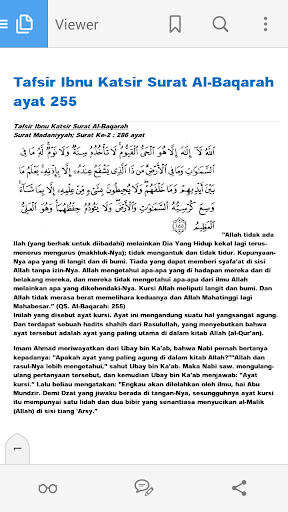 Viewer
Tafsir Ibnu Katsir Surat Al-Baqarah
ayat 255
Tafsir Ibnu Katsir Surat Al-Baqarah
Surat Madaniyyah; Surat Ke-2 : 286 ayat
اللَّهُ لَا إِلَٰهَ إِلَّا هُوَ الْحَيُّ الْقَيُّومُ لَا تَأْخُذُهُ سِنَةٌ وَلَا نَوْمٌ لَّهُ مَا فِي
السَّمَاوَاتِ وَمَا فِي الْأَرْضِ مَن ذَا الَّذِي يَشْفَعُ عِندَهُ إِلَّا بِإِذْنِهِ يَعْلَمُ مَا
بَيْنَ أَيْدِيهِمْ وَمَا خَلْفَهُمْ وَلَا يُحِيطُونَ بِشَيْءٍ مِّنْ عِلْمِهِ إِلَّا بِمَا شَاءَ
وَسِعَ كُرْسِيُّهُ السَّمَاوَاتِ وَالْأَرْضَ وَلَا يَئُودُهُ حِفْظُهُمَا وَهُوَ الْعَلِيُّ
الْعَظِيمُ ٢٥٥
"Allah tidak ada
Ilah (yang berhak untuk diibadahi) melainkan Dia Yang Hidup kekal lagi terus-
menerus mengurus (makhluk-Nya); tidak mengantuk dan tidak tidur. Kepunyaan-
Nya apa yang di langit dan di bumi. Tiada yang dapat memberi syafa'at di sisi
Allah tanpa izin-Nya. Allah mengetahui apa-apa yang di hadapan mereka dan di
belakang mereka, dan mereka tidak mengetahui apa-apa dari ilmu Allah
melainkan apa yang dikehendaki-Nya. Kursi Allah meliputi langit dan bumi. Dan
Allah tidak merasa berat memelihara keduanya dan Allah Mahatinggi lagi
Mahabesar." (QS. Al-Baqarah: 255)
Inilah yang disebut ayat kursi. Ayat ini mengandung suatu hal yangsangat agung.
Dan terdapat sebuah hadits shahih dari Rasulullah, yang menyebutkan bahwa
ayat tersebut adalah ayat yang paling utama di dalam kitab Allah (al-Qur'an).
Imam Ahmad meriwayatkan dari Ubay bin Ka'ab, bahwa Nabi pernah bertanya
kepadanya: "Apakah ayat yang paling agung di dalam kitab Allah?""Allah dan
rasul-Nya lebih mengetahui," sahut Ubay bin Ka'ab. Maka Nabi saw. mengulang-
ulang pertanyaan tersebut, dan kemudian Ubay bin Ka'ab menjawab: "Ayat
kursi." Lalu beliau mengatakan: "Engkau akan dilelahkan oleh ilmu, hai Abu
Mundzir. Demi Dzat yang jiwaku berada di tangan-Nya, sesungguhnya ayat kursi
itu mempunyai satu lidah dan dua bibir yang senantiasa menyucikan al-Malik
(Allah) di sisi tiang 'Arsy."
1